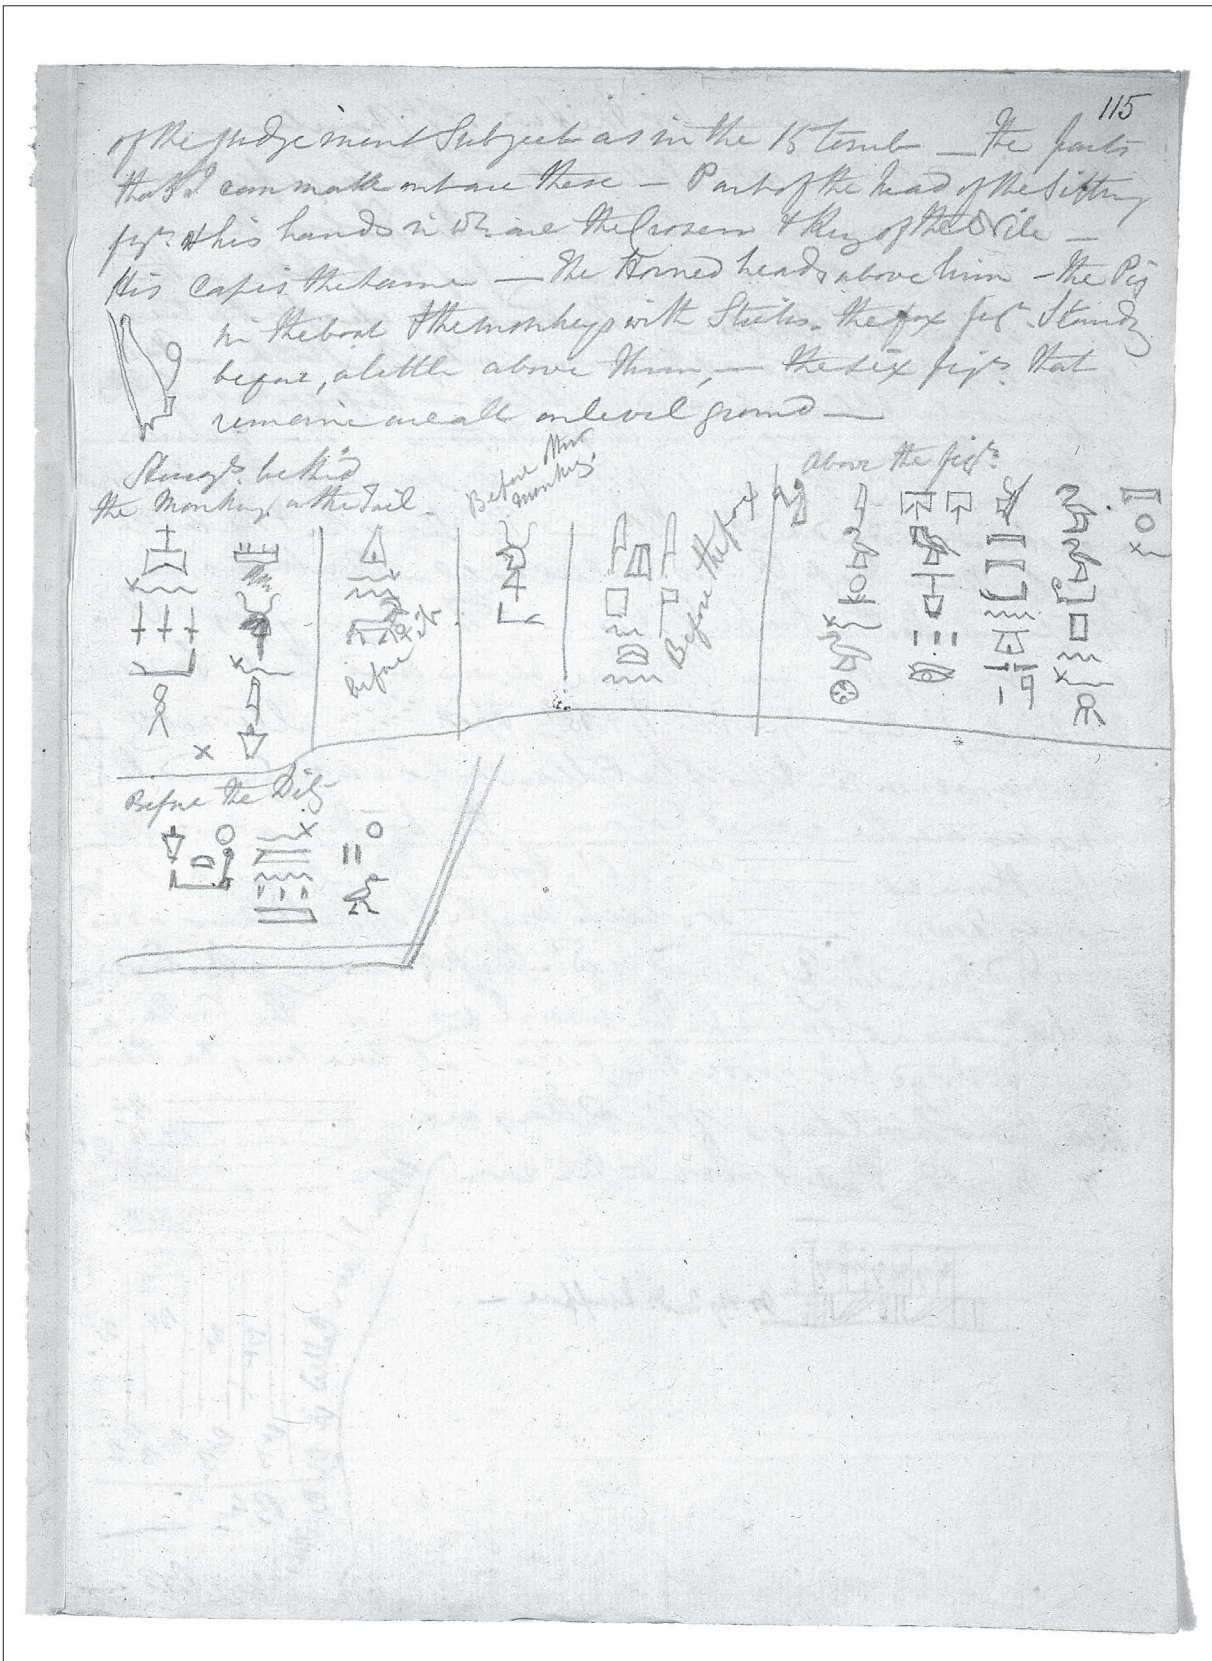 115
of the judgement Subject as in the 15 tomb — the parts
that I can make out are these — Part of the head of the Sitting
figr. & his hands in wh. are the Crosen & Key of the Nile —
His cap is the same — The Horned heads above him — the Pig
in the boat & the monkeys with Sticks. the fox figr. Standg
before, a little above them, — the six figrs. that
remain are all on level ground —
behind
the Monkey at the Tail.
Before other
monkey.
Before the fox
Above the figrs.
Before
Before the Pig